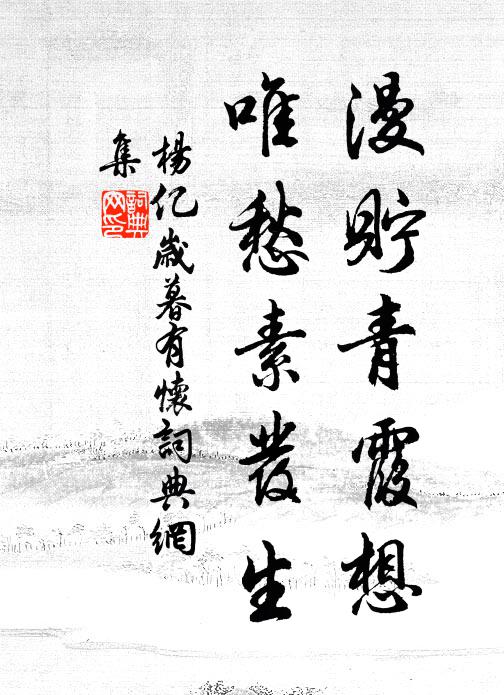 漫貯青霞想
唯愁素发生
楊亿歲暮有懷詞典網
集
詞典
网印